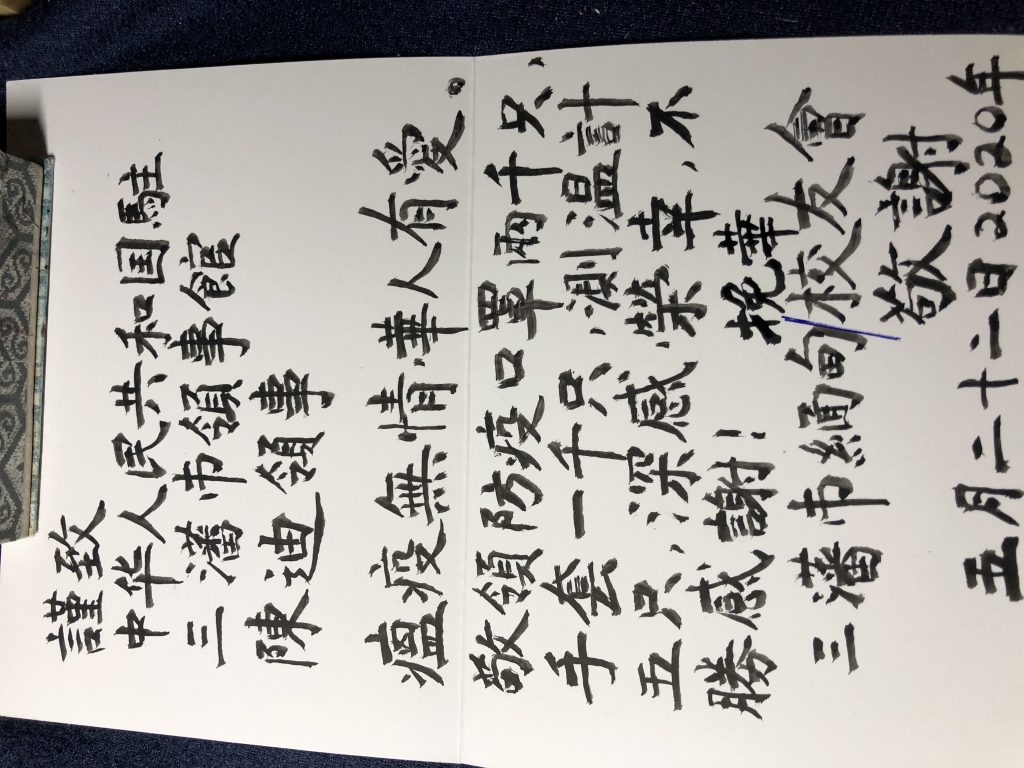 謹致
中华人民共和国駐
三藩市領事館
陳迪領事
瘟疫無情，華人有愛。
敬領防疫口罩兩千只、
手套一千只、測温計
五只，深感榮幸，不
勝感謝！
挽華
三藩市緬甸校友會
敬謝
五月二十二日2020年